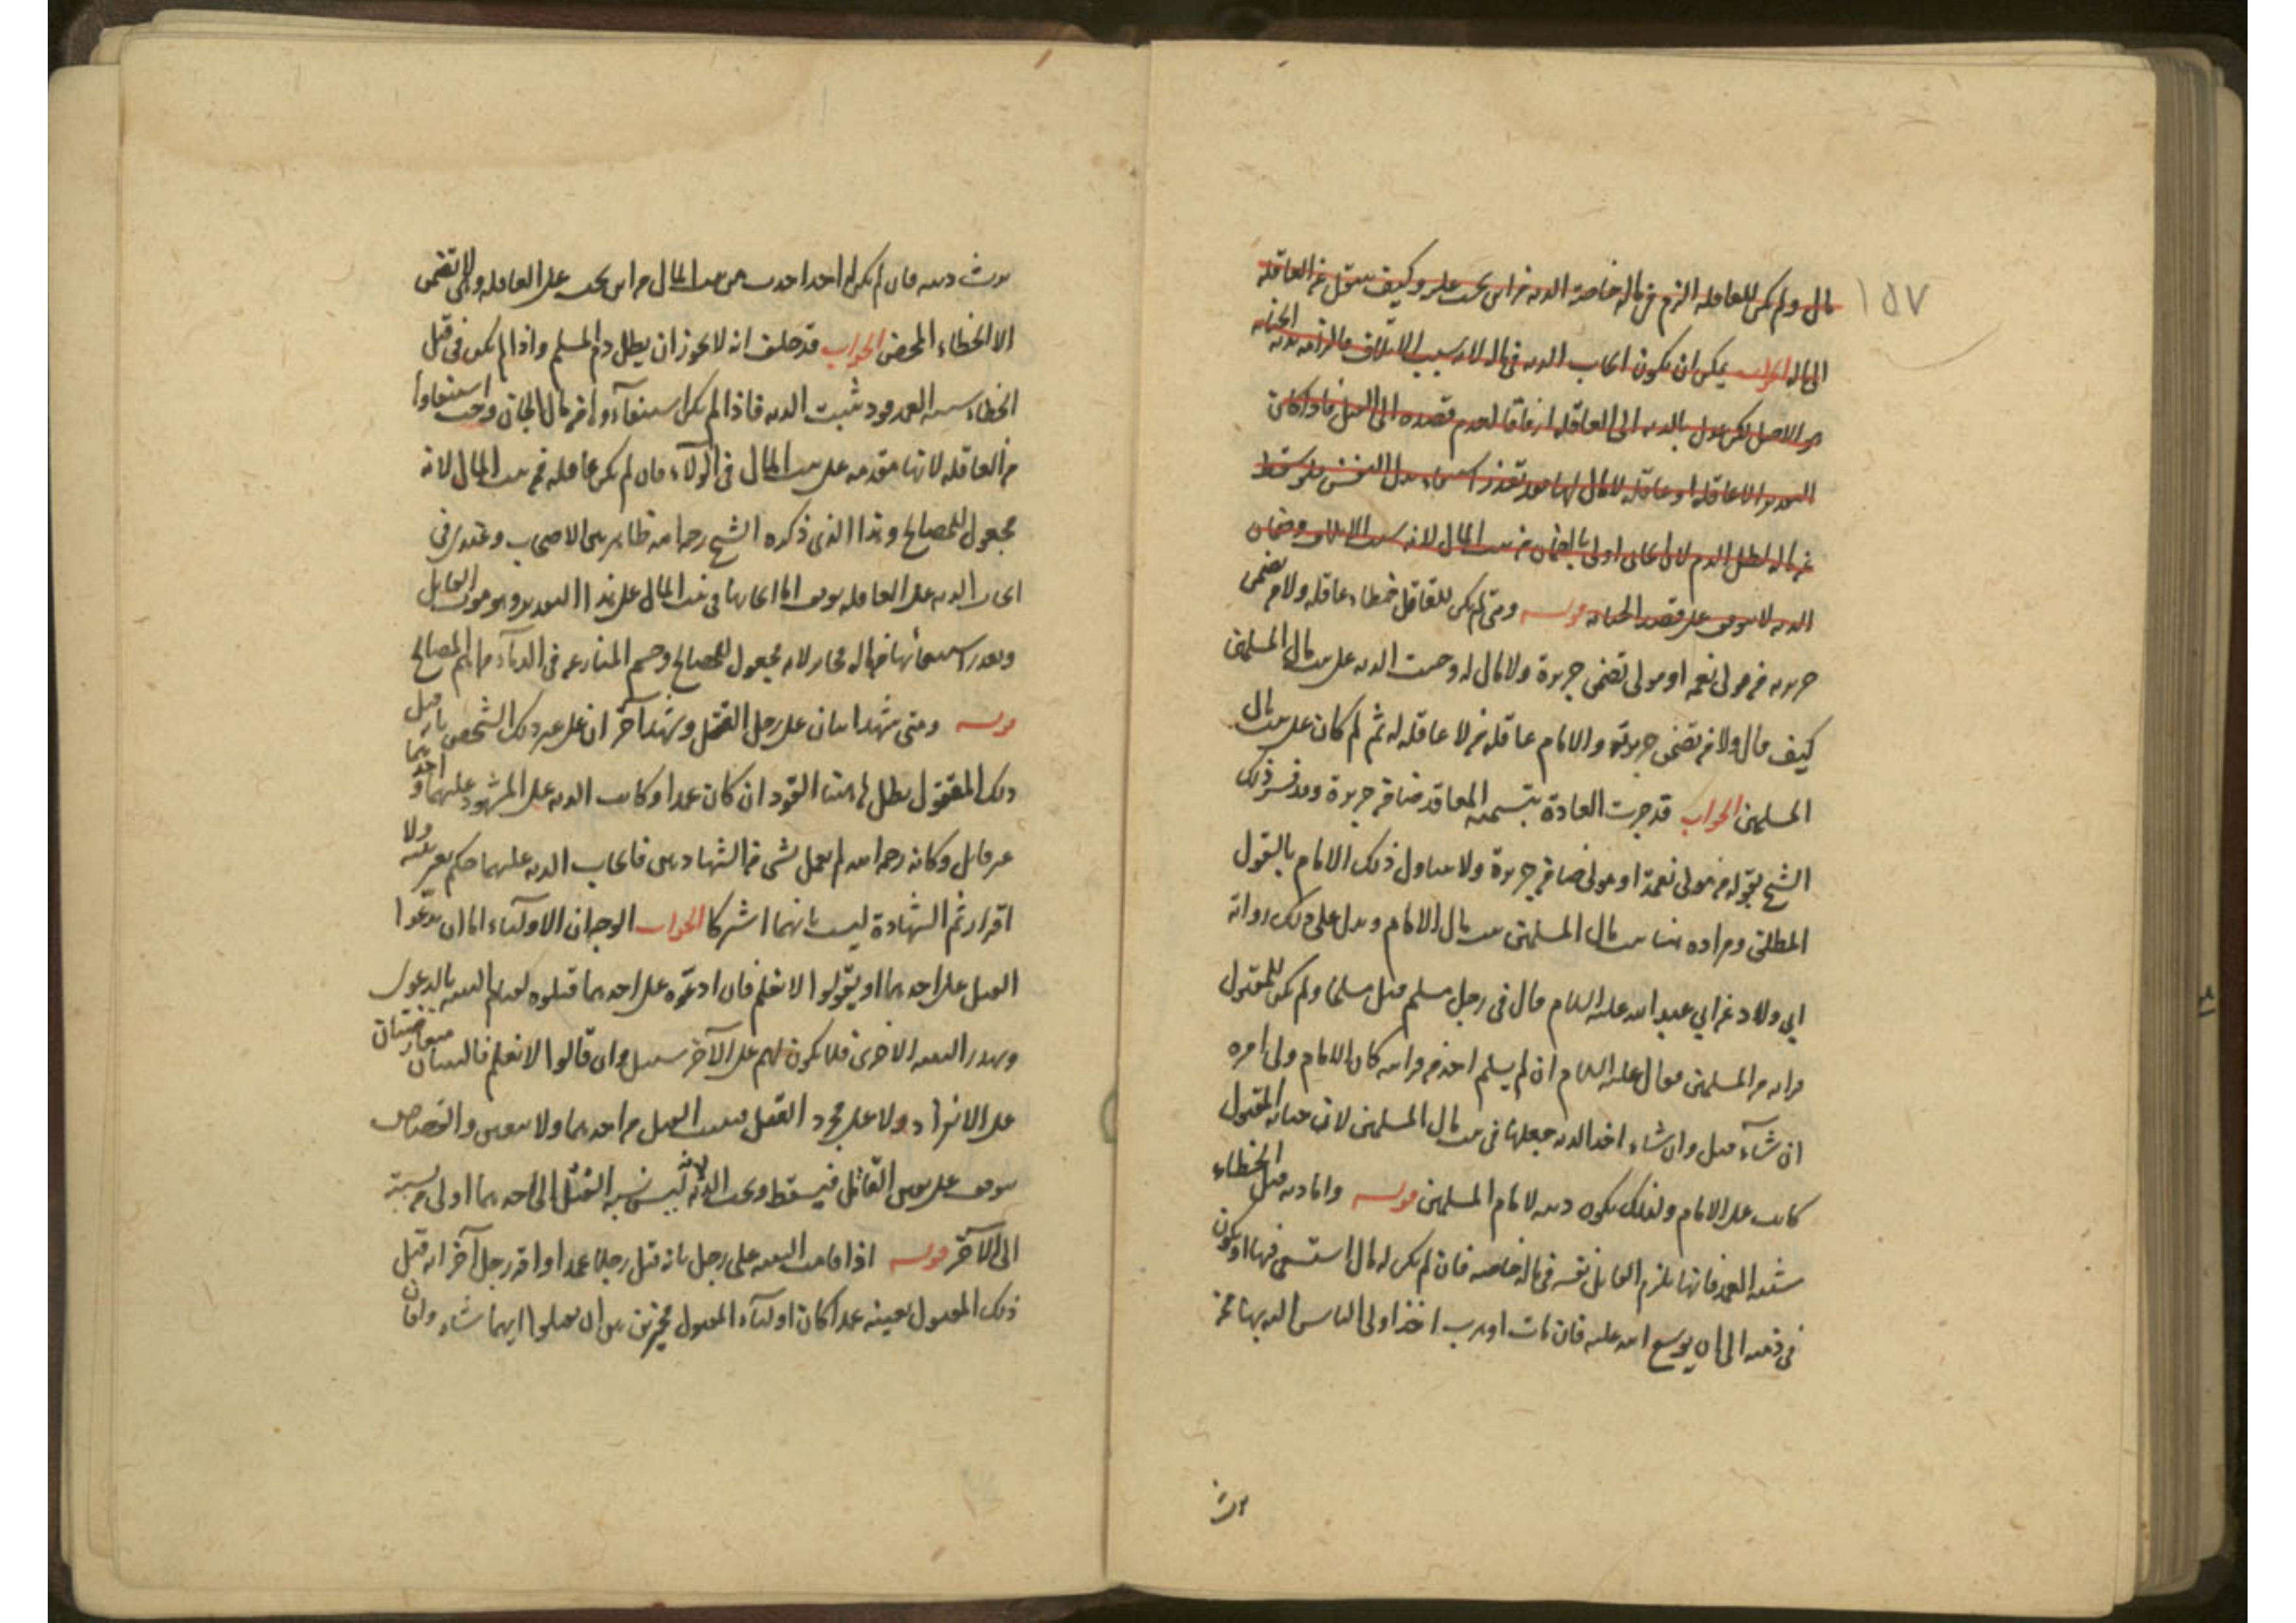 ١٥٧
مال ولم يكن للعاقله الزم في ماله خاصة الديه من اين يجب عليه وكيف ينتقل عن العاقله
الى ماله الجواب يمكن ان يكون ايجاب الديه في ماله لانه سبب الاتلاف فالزامه بديه الجنايه
هو الاصل لكن عدل بالديه الى العاقله ارفاقا لعدم قصده الى القتل فاذا كان
التقدير الا عاقله او عاقله لا مال لها فقد تعذر استيفاء بدل النفس فلو سقط
عن ماله لطل الدم لان الجاني اولى بالضمان من بيت المال لانه سبب الاتلاف وضمان
الديه لا يتوقف على قصد الجنايه قوله ومتى لم يكن للقاتل خطاء عاقله ولا من يضمن
جريرته من مولى نعمه او مولى تضمن جريرة ولا مال له وجبت الديه على بيت مال المسلمين
كيف قال ولا من يضمن جريرته والامام عاقله من لا عاقله له ثم لم كان على بيت مال
المسلمين الجواب قد جرت العادة بتسميه المعاقد ضامن جريرة وقد فسر ذلك
الشيخ بقوله من مولى نعمة او مولى ضامن جريرة ولا يتناول ذلك الامام بالقول
المطلق ومراده هنا بيت مال المسلمين بيت مال الامام ويدل على ذلك رواية
ابي ولاد عن ابي عبد الله عليه السلام قال في رجل مسلم قتل مسلما ولم يكن للمقتول
قرابه من المسلمين فقال عليه السلام ان لم يسلم احد من قرابته كان الامام ولى امره
ان شآء قتل وان شاء اخذ الديه جعلها في بيت مال المسلمين لان جنايه المقتول
كانت على الامام ولذلك يكون ديته لامام المسلمين قوله واما ديه قتل الخطاء
شبيه العمد فانها يلزم القاتل نفسه في ماله خاصه فان لم يكن له مال استسعى فيها او يكون
في ذمته الى ان يوسع الله عليه فان مات او هرب اخذ اولى الناس اليه بها ممن
يرث
يرث ديته فان لم يكن له احد اخذت من بيت المال من اين يجب على العاقله وهي لا تضمن
الا الخطاء المحض الجواب قد حلف انه لا يجوز ان يطل دم المسلم واذا لم يكن في قتل
الخطاء شبيه العمد قود ثبتت الديه فاذا لم يكن استيفآؤها من مال الجاني وجب استيفاؤها
من العاقله لانها مقدمه على بيت المال في الولآء فان لم يكن عاقله فمن بيت المال لانه
مجعول للمصالح وهذا الذي ذكره الشيخ رحمه الله ظاهر بين الاصحاب وعندي في
ايجاب الديه على العاقله توقف اما ايجابها في بيت المال على هذا التقدير وهو موت القاتل
وتعذر استيفائها من ماله فجايز لانه مجعول للمصالح وحسم المنازعه في الدمآء من اهم المصالح
قوله ومتى شهد اثنان على رجل القتل وشهد آخران على غير ذلك الشخص بانه قتل
ذلك المقتول بطل هاهنا القود ان كان عمدا وكانت الديه على المشهود عليهما
من قابل وكانه رحمه الله لم يعمل بشي من الشهادتين فايجاب الديه عليهما حكم بغير بينه ولا
اقرار ثم الشهادة ليست بانهما اشتركا الجواب الوجه ان الاوليآء اما ان يدعوا
القتل على احدهما او يقولوا لا نعلم فان ادعوه على احدهما قتلوه لقيام البينه بالدعوى
ويهدر البينه الاخرى فلا يكون لهم على الآخر سبيل وان قالوا لا نعلم فالبينتان متعارضتان
على الانفراد ولا على مجرد القتل فيثبت القتل من احدهما ولا يتعين والقصاص
يتوقف على تعيين القاتل فيسقط ويجب الديه لانه ليس نسبه القتل الى احدهما اولى من نسبته
الى الآخر قوله اذا قامت البينه على رجل بانه قتل رجلا عمدا واقر رجل آخر انه قتل
ذلك المقتول بعينه عمدا كان اوليآء المقتول مخيرين بين ان يقتلوا ايهما شاء وان